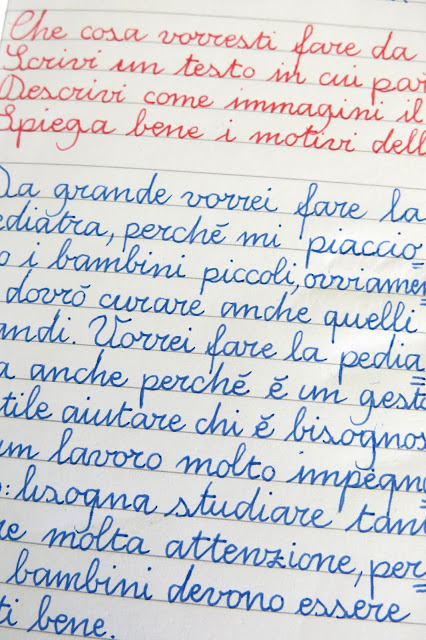 Che cosa vorresti fare da
Scrivi un testo in cui par
Descrivi come immagini il
Spiega bene i motivi dell
Da grande vorrei fare la
ediatra, perché mi piaccio=
o i bambini piccoli, ovviamen=
dovrò curare anche quelli
andi. Vorrei fare la pedia=
a anche perché è un gesto
tile aiutare chi è bisognos
un lavoro molto impegna
o: bisogna studiare tan
re molta attenzione, per
bambini devono essere
ti bene.